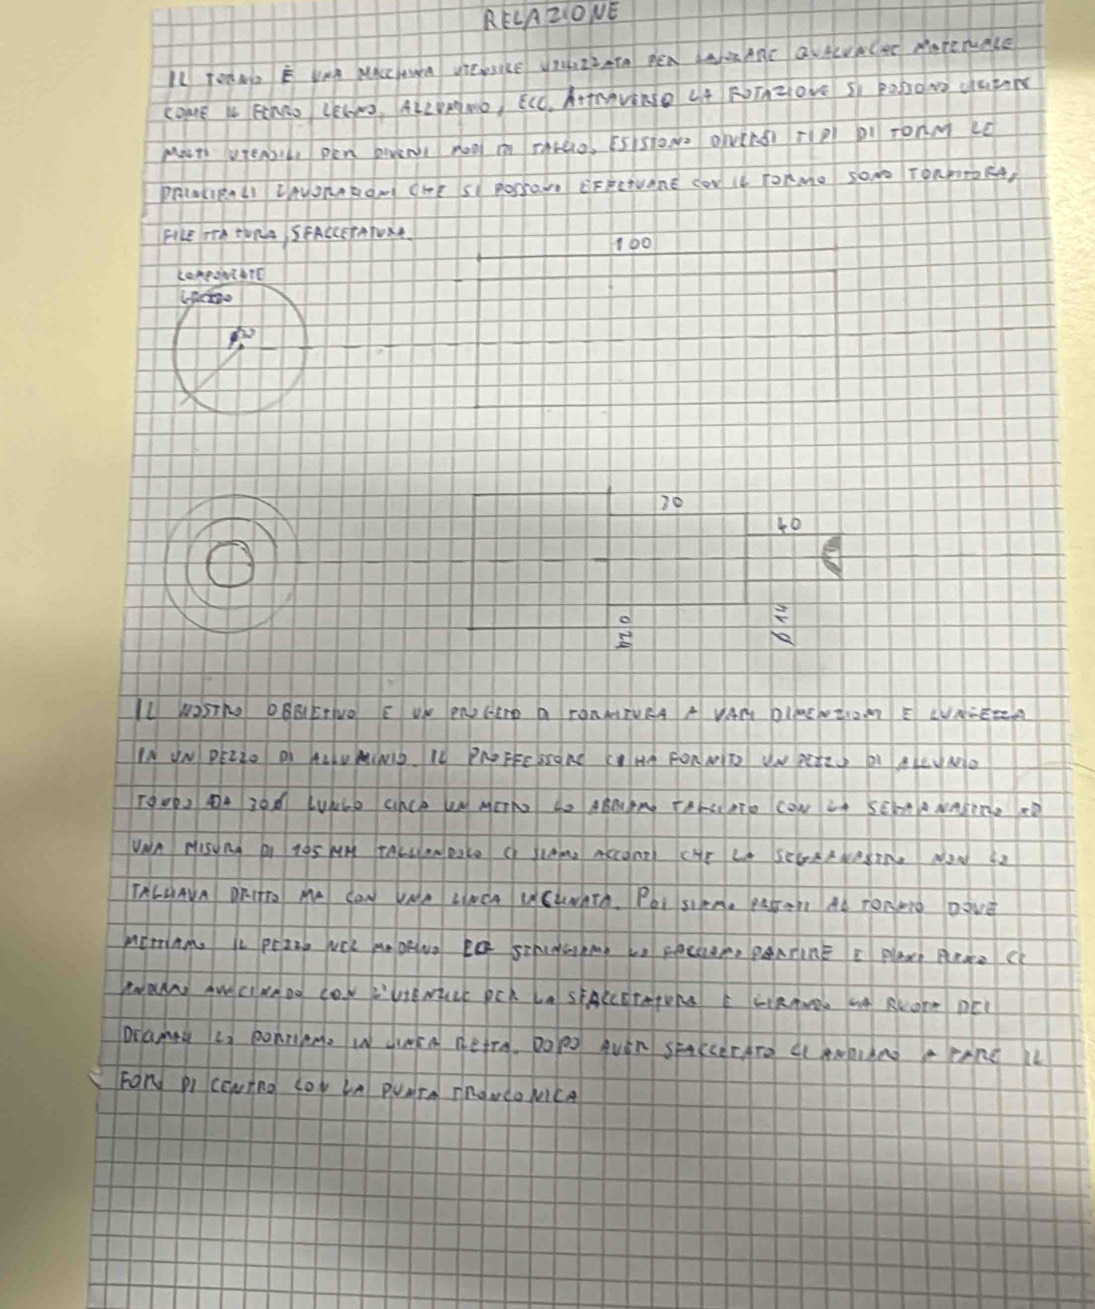 RELAZIONE
IL TORNIO È UNA MACCHINA UTENSILE UTILIZZATA PER LAVORARE QUALUNCHE MATERIALE
COME IL FERRO, LEGNO, ALLUMINIO, ECC. ATTRAVERSO LA ROTAZIONE SI POSSONO
MOLTI UTENSILI PER DIVERSI MODI DI TAGLIO. ESISTONO DIVERSI TIPI DI TORNI LE
PRINCIPALI LAVORAZIONI CHE SI POSSONO EFFETTUARE CON IL TORNIO SONO TORNITURA,
FILETTATURA, SFACCETATURA
100
COMPONENTE
30
40
IL NOSTRO OBBIETIVO E UN PROGETTO DI TORNITURA A VARI DIMENZIONI E
IN UN PEZZO DI ALLUMINIO. IL PROFFESSORE CI HA FORNITO UN PEZZO DI
TONDO DA 30Ø LUNGO CIRCA UN METRO LO ABBIAMO TAGLIATO CON LA
UNA MISURA DI 105 MM TAGLIANDOLO CI SIAMO ACCORTI CHE LA NON LO
TAGLIAVA DRITTO MA CON UNA LINEA INCLINATA. POI SIAMO AL TORNIO DOVE
METTIAMO IL PEZZO NEL MANDRINO LO STRINGIAMO LO FACCIAMO PARTIRE E PIANO PIANO CI
CON L'UTENSILE PER LA SFACCETATURA E GIRANDO LA RUOTA DEI
LO PORTIAMO IN LINEA RETTA. DOPO AVER SFACCETATO CI A FARE IL
FORO DI CENTRO CON LA PUNTA TRONCONICA